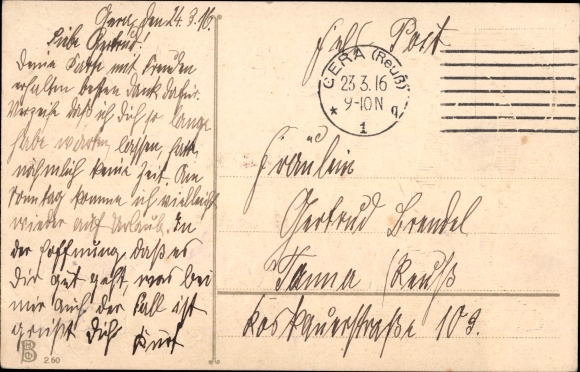 Gera, den 24.3.16.
Liebe Gertrud!
Deine Karte mit Freuden
erhalten besten Dank dafür.
Verzeihe daß ich dich so lange
habe warten lassen, hatte
nähmlich keine Zeit. Am
Sonntag komme ich vielleicht
wieder auf Urlaub. In
der Hoffnung, daß es
Dir gut geht, was bei
mir auch der Fall ist
grüßt Dich Kurt
Feld Post
GERA (Reuß)
23.3.16
9-10N
* 1 q
Fräulein
Gertrud Brendel
Tanna (Reuß
Koskauerstraße 103.
260